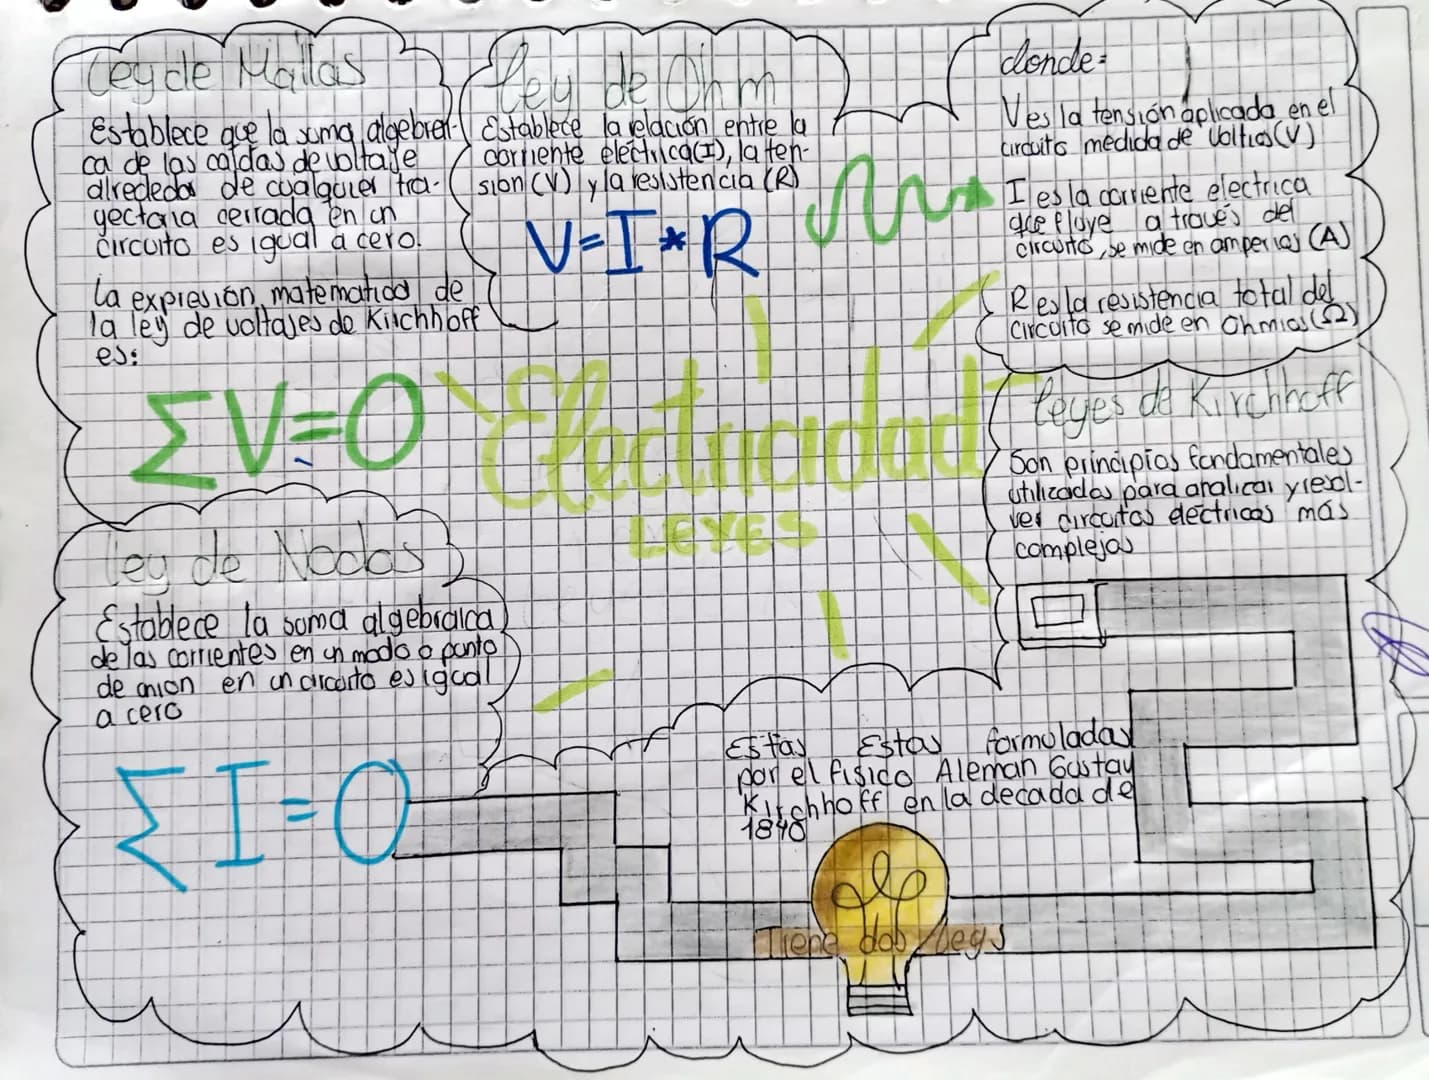 Ley de Mallas
Establece que la suma algebrei-
ca de las caídas de voltaje
alrededor de cualquier tra-
yectoria cerrada en un
circuito es igual a cero.
La expresión matematica de
la ley de voltajes de Kirchhoff
es:
ΣV=0
Ley de Ohm
Establece la relación entre la
corriente eléctrica(I), la ten-
sion (V) y la resistencia (R)
V=I*R
donde:
V es la tensión aplicada en el
circuito medida de Voltios(V)
I es la corriente electrica
que fluye a través del
circuito, se mide en amperios (A)
R es la resistencia total del
circuito se mide en Ohmios (Ω)
Electricidad
LEYES
Leyes de Kirchhoff
Son principios fundamentales
utilizados para analicar y resol-
ver circuitos eléctricos más
complejos
Ley de Nodos
Establece la suma algebraica
de las corrientes en un modo o punto
de union en un circuito es igual
a cero
ΣI=0
Estas Estas formuladas
por el fisico Aleman Gustav
Kirchhoff en la decada de
1840
Tiene dos